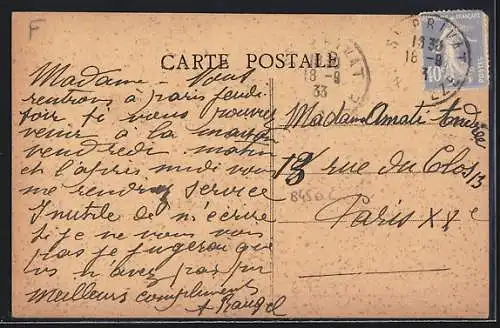 F
CARTE POSTALE
ST PRIVAT
18 30
18 - 9
33
40
POSTES
Madame - Nous
rentrons à paris jeudi
soir si vous pouvez
venir à la maison
vendredi matin
et l'après midi vous
me rendrez service
Inutile de m'écrire
Si je ne vous vois
pas je jugerai que
vs n'avez pas pu
meilleurs compliments
A Rangel
Madame Amati Andrée
13 rue du Clos 13
845a
Paris XXe